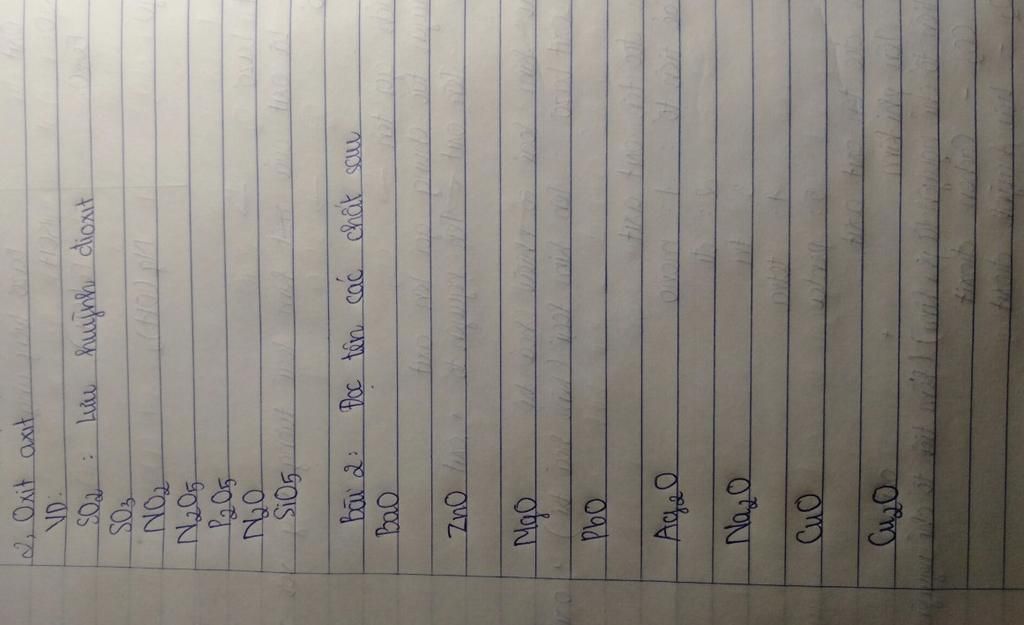 2, Oxit axit
VD:
SO₂ : Lưu huỳnh đioxit
SO₃
NO₂
N₂O₅
P₂O₅
N₂O
SiO₅
Bài 2: Đọc tên các chất sau
BaO
ZnO
MgO
PbO
Ag₂O
Na₂O
CuO
Cu₂O